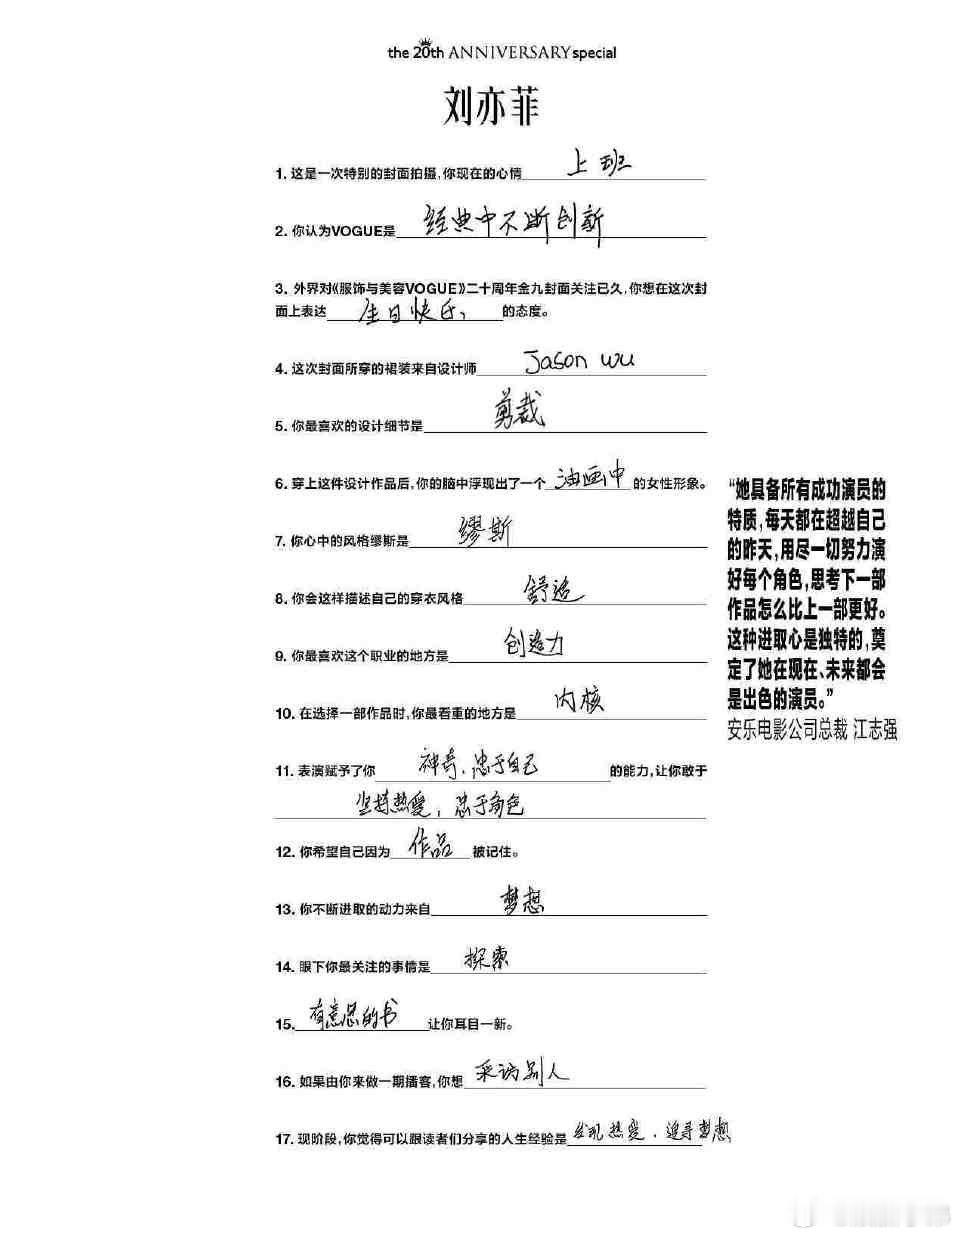 the 20th ANNIVERSARY special
刘亦菲
1. 这是一次特别的封面拍摄,你现在的心情 上班
2. 你认为VOGUE是 经典中不断创新
3. 外界对《服饰与美容VOGUE》二十周年金九封面关注已久,你想在这次封
面上表达 生日快乐 的态度。
4. 这次封面所穿的裙装来自设计师 Jason wu
5. 你最喜欢的设计细节是 剪裁
6. 穿上这件设计作品后,你的脑中浮现出了一个 油画中 的女性形象。
7. 你心中的风格缪斯是 缪斯
8. 你会这样描述自己的穿衣风格 舒适
9. 你最喜欢这个职业的地方是 创造力
10. 在选择一部作品时,你最看重的地方是 内核
11. 表演赋予了你 神奇、忠于自己 的能力,让你敢于
坚持热爱,忠于角色
12. 你希望自己因为 作品 被记住。
13. 你不断进取的动力来自 梦想
14. 眼下你最关注的事情是 探索
15. 有意思的书 让你耳目一新。
16. 如果由你来做一期播客,你想 采访别人
17. 现阶段,你觉得可以跟读者们分享的人生经验是 发现热爱,追寻梦想
“她具备所有成功演员的
特质,每天都在超越自己
的昨天,用尽一切努力演
好每个角色,思考下一部
作品怎么比上一部更好。
这种进取心是独特的,奠
定了她在现在、未来都会
是出色的演员。”
安乐电影公司总裁 江志强